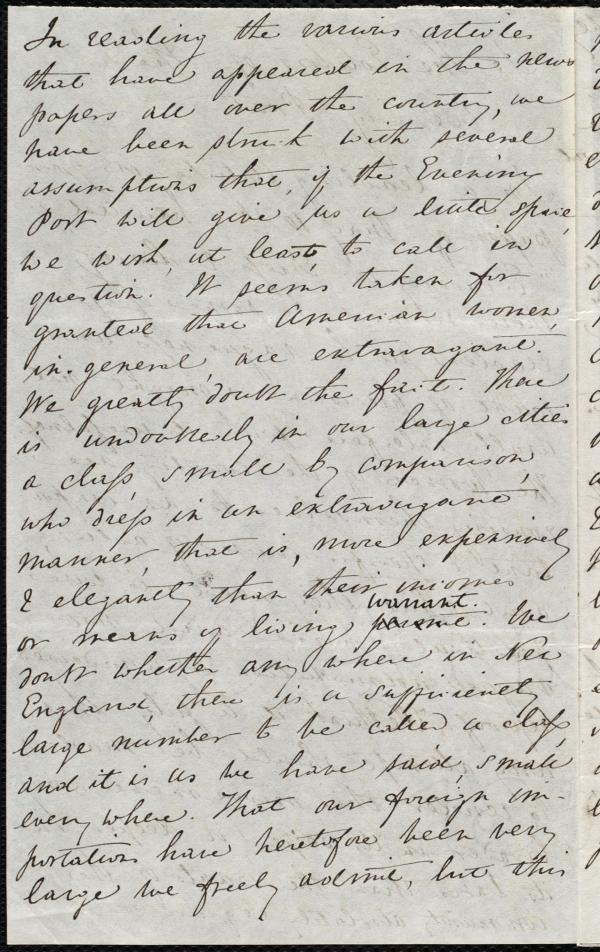 In reading the various articles
that have appeared in the news
papers all over the country, we
have been struck with several
assumptions that, if the Evening
Post will give us a little space,
we wish, at least, to call in
question. It seems taken for
granted that American women,
in general, are extravagant.
We greatly doubt the fact. There
is undoubtedly in our large cities
a class, small by comparison,
who dress in an extravagant
manner, that is, more expensively
& elegantly than their incomes
or means of living warrant. We
doubt whether any where in New
England, there is a sufficiently
large number to be called a class,
and it is as we have said, small
every where. That our foreign im-
portations have heretofore been very
large we freely admit, but this